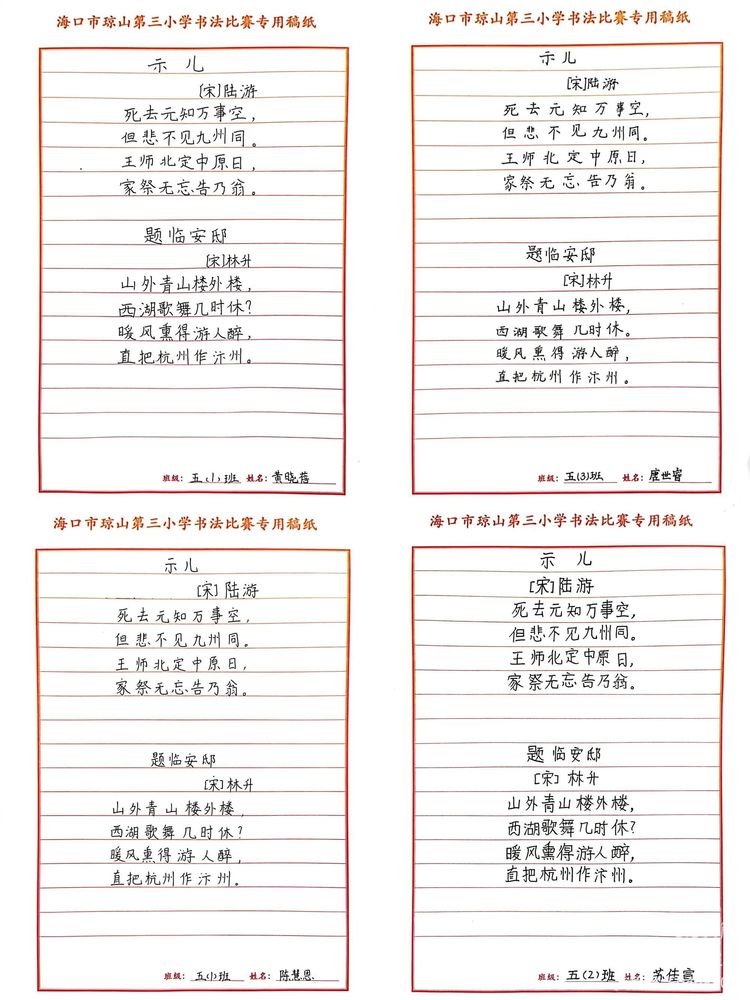 海口市琼山第三小学书法比赛专用稿纸
示 儿
[宋]陆游
死去元知万事空，
但悲不见九州同。
王师北定中原日，
家祭无忘告乃翁。
题临安邸
[宋]林升
山外青山楼外楼，
西湖歌舞几时休？
暖风熏得游人醉，
直把杭州作汴州。
班级：五(1)班 姓名：黄晓蓓
海口市琼山第三小学书法比赛专用稿纸
示 儿
[宋]陆游
死去元知万事空，
但悲不见九州同。
王师北定中原日，
家祭无忘告乃翁。
题临安邸
[宋]林升
山外青山楼外楼，
西湖歌舞几时休。
暖风熏得游人醉，
直把杭州作汴州。
班级：五(3)班 姓名：唐世睿
海口市琼山第三小学书法比赛专用稿纸
示儿
[宋]陆游
死去元知万事空，
但悲不见九州同。
王师北定中原日，
家祭无忘告乃翁。
题临安邸
[宋]林升
山外青山楼外楼，
西湖歌舞几时休？
暖风熏得游人醉，
直把杭州作汴州。
班级：五(1)班 姓名：陈慧恩
海口市琼山第三小学书法比赛专用稿纸
示 儿
[宋]陆游
死去元知万事空，
但悲不见九州同。
王师北定中原日，
家祭无忘告乃翁。
题临安邸
[宋]林升
山外青山楼外楼，
西湖歌舞几时休？
暖风熏得游人醉，
直把杭州作汴州。
班级：五(2)班 姓名：苏佳宣